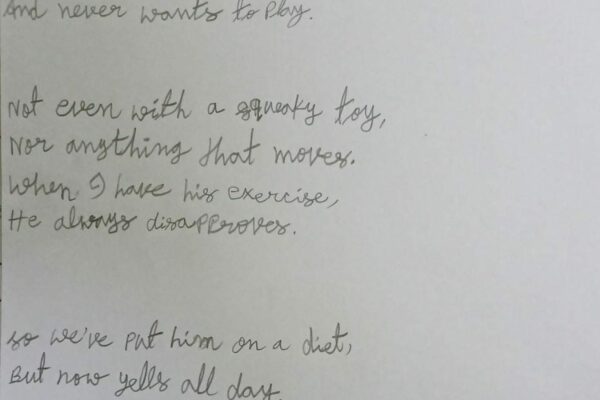 And never wants to play.
Not even with a squeaky toy,
Nor anything that moves.
When I have his exercise,
He always disapproves.
so we've put him on a diet,
But now yells all day.